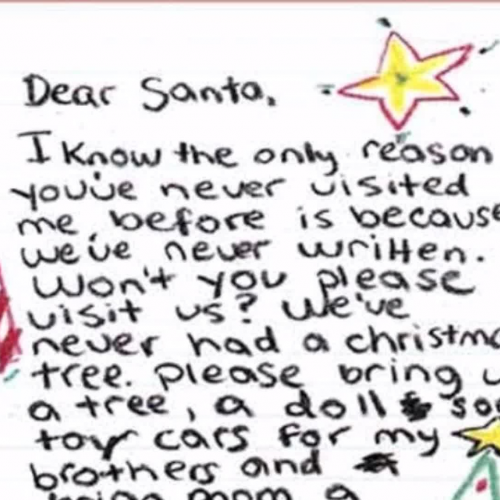 Dear Santa,
I know the only reason
you've never visited
me before is because
we've never written.
Won't you please
visit us? We've
never had a christma
tree. please bring u
a tree, a doll so
toy cars for my
brothers and
mom a